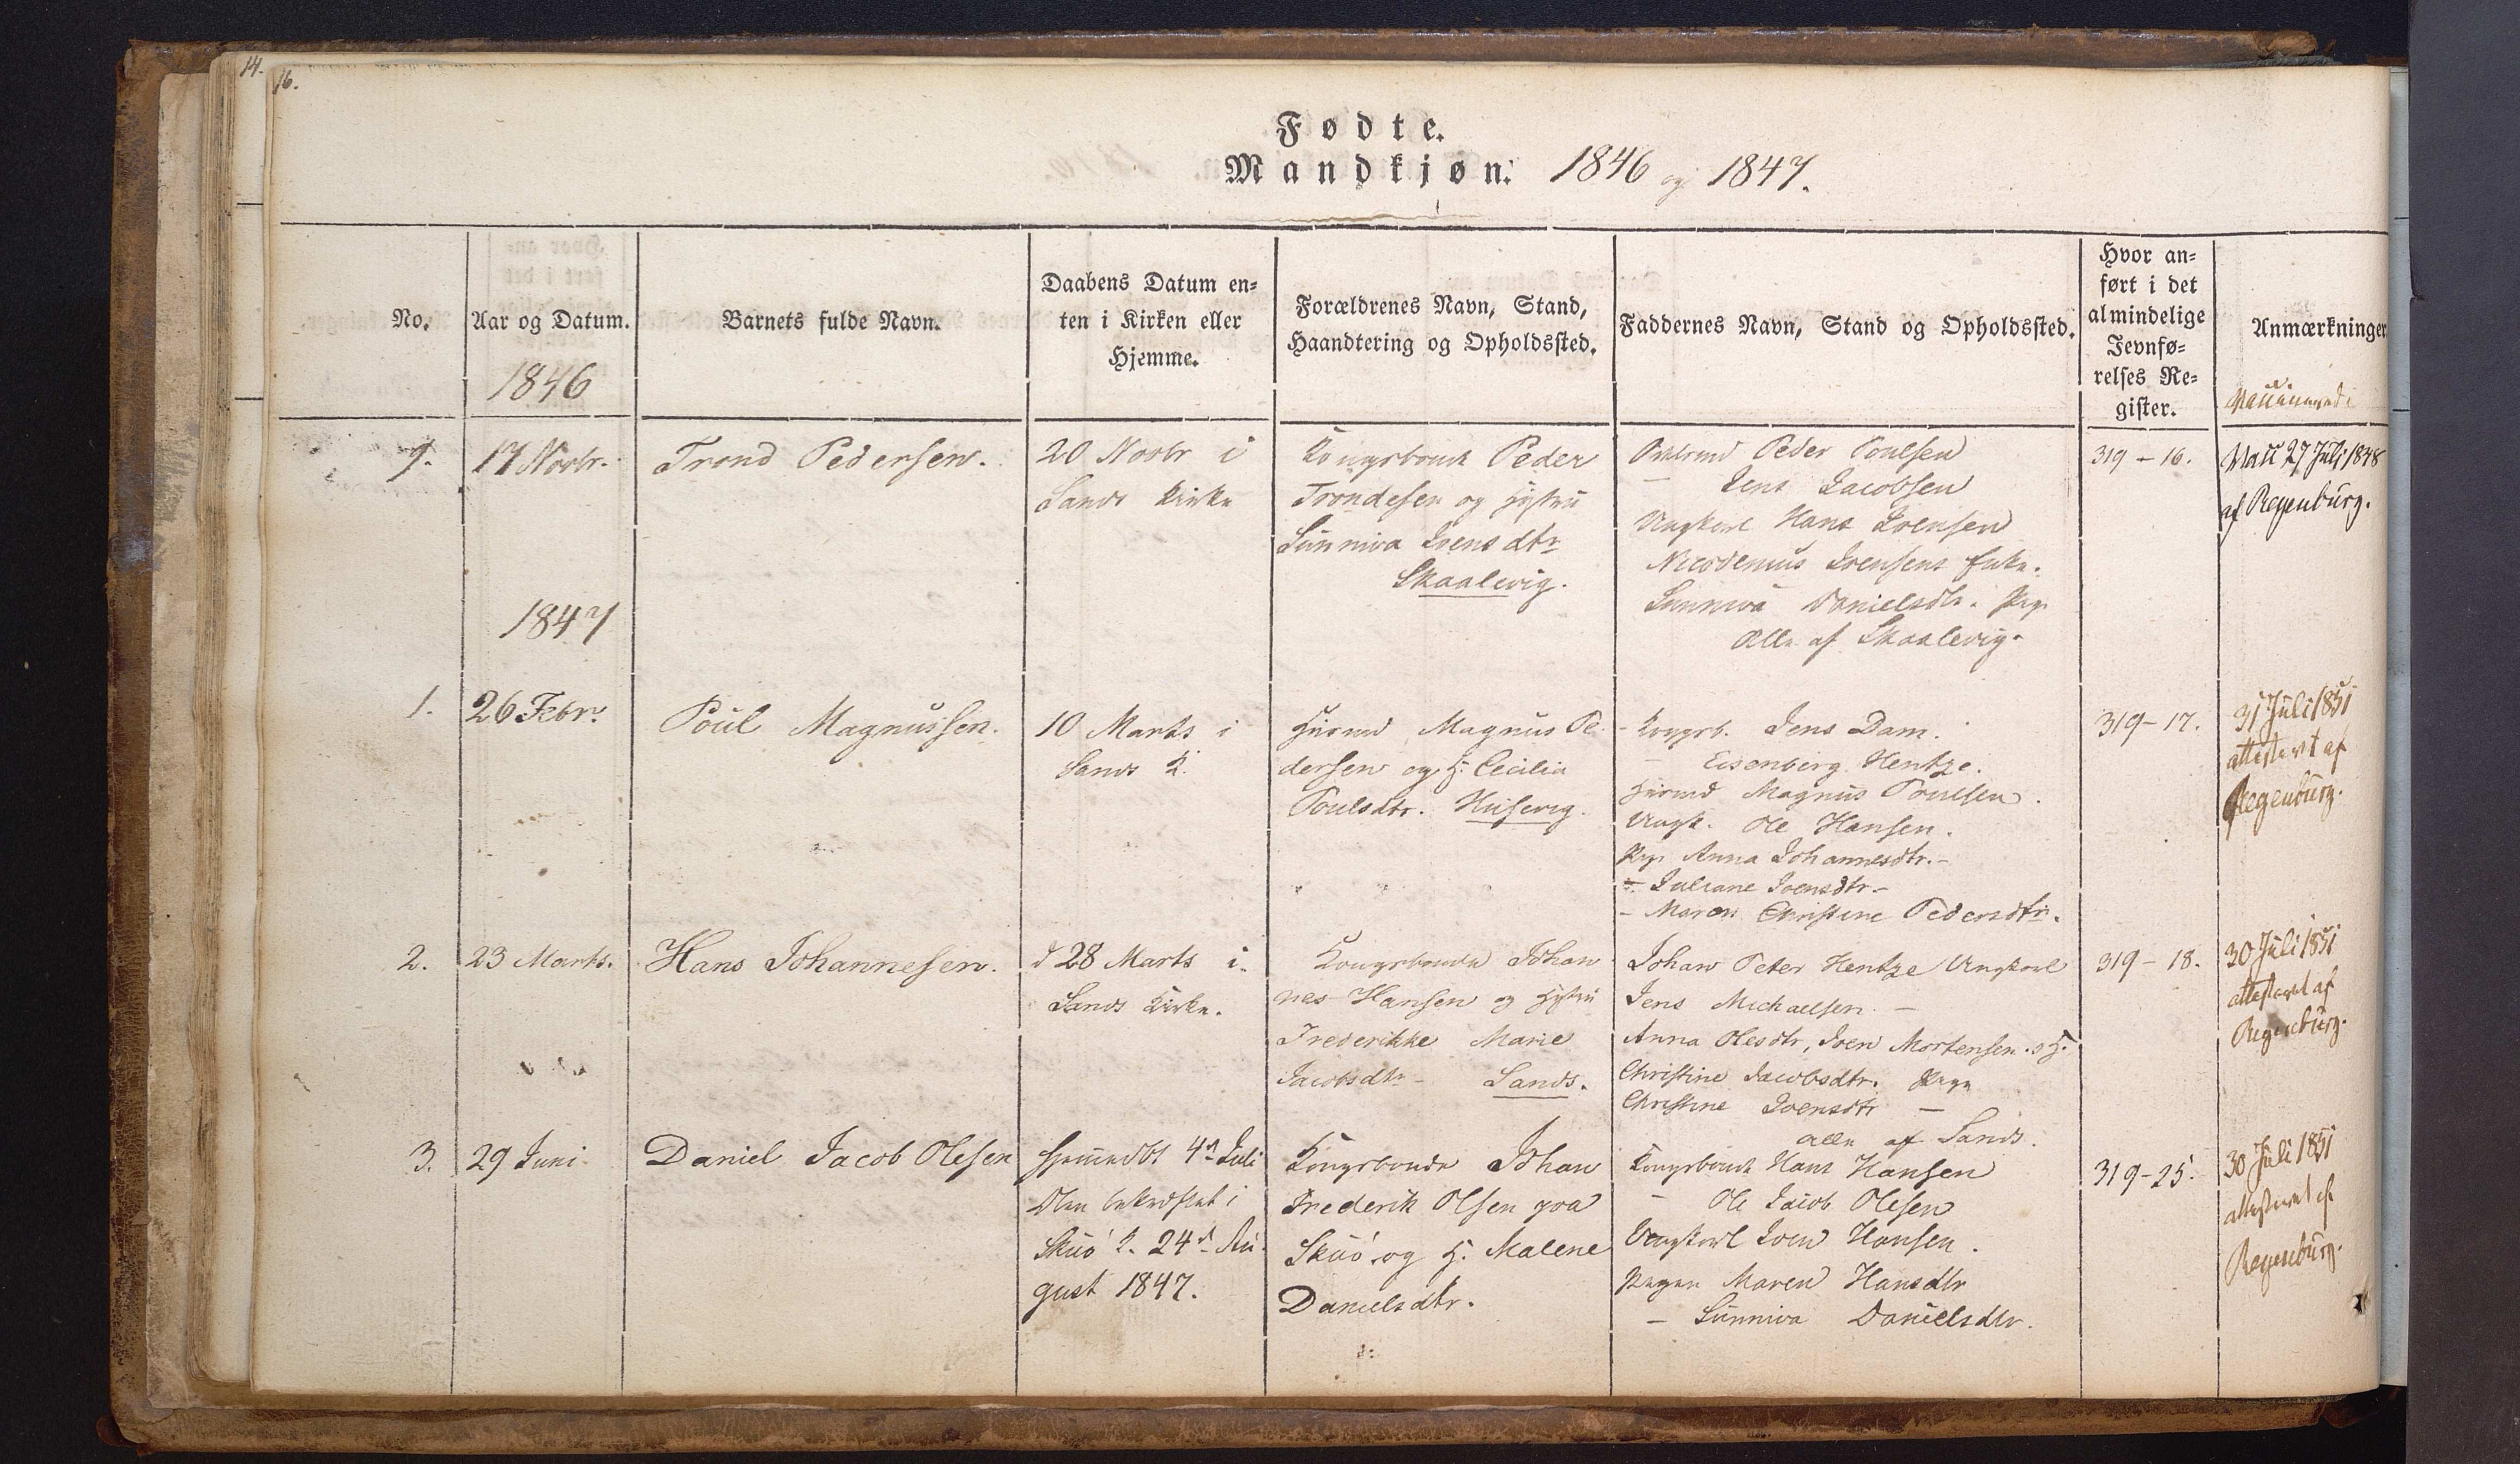 14.
16.
Fødte.
Mandkjøn. 1846 og 1847.
No.
Aar og Datum.
1846
Barnets fulde Navn.
Daabens Datum en-
ten i Kirken eller
Hjemme.
Forældrenes Navn, Stand,
Haandtering og Opholdssted.
Faddernes Navn, Stand og Opholdssted.
Hvor an-
ført i det
almindelige
Jevnfø-
relses Re-
gister.
Anmærkninger
7.
17 Novbr.
Trond Pedersen.
20 Novbr i
Sands Kirke
Kongsbonde Peder
Trondesen og Hustru
Sunniva Joensdtr
Skaalevig.
Peder Poulsen
— Jens Jacobsen
Ungkarl Hans Joensen
Nicodemus Joensens Enke.
Sunneva Danielsdtr. Pige
Alle af Skaalevig.
319 - 16.
Vacc 27 Juli 1848
af Regenburg.
1847
1.
26 Febr.
Poul Magnussen.
10 Marts i
Sands K.
Huusmd Magnus Pe-
dersen og H. Cecilia
Poulsdtr. Husevig.
- Kongsb. Jens Dam.
— Eisenberg Hentze.
Huusmd Magnus Poulsen.
Ungk. Ole Hansen.
Pige Anna Johannesdtr.-
- Juliane Joensdtr-
- Maren Christine Pedersdtr.
319 - 17.
31 Juli 1851
attesteret af
Regenburg.
2.
23 Marts.
Hans Johannesen.
d 28 Marts i
Sands Kirke.
Kongsbonde Johan
nes Hansen og Hustru
Frederikke Marie
Jacobsdtr - Sands.
Johan Peter Hentze Ungkarl
Jens Michaelsen. —
Anna Olesdtr, Joen Mortensen.s H.
Christine Jacobsdtr. Pige
Christine Joensdtr —
alle af Sands.
319 - 18.
30 Juli 1851
attesteret af
Regenburg.
3.
29 Juni
Daniel Jacob Olesen
Hjemmedbt 4de Juli
bekræftet i
Skuø K. 24de Au-
gust 1847.
Kongsbonde Johan
Frederik Olsen paa
Skuø og H. Malene
Danielsdtr.
Kongsbonde Hans Hansen
— Ole Jacob Olesen
Ungkarl Joen Hansen.
Pigen Maren Hansdtr
— Sunniva Danielsdtr.
319-25.
30 Juli 1851
attesteret af
Regenburg.